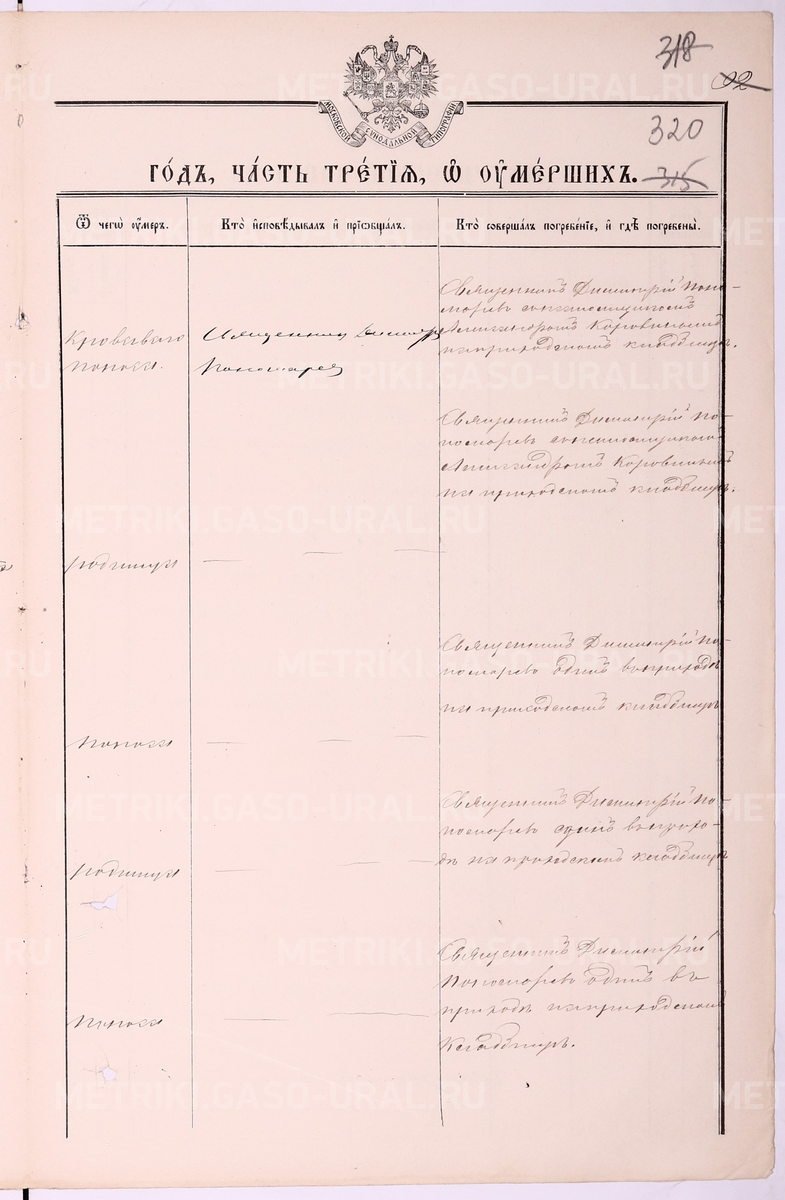 318
92
МОСКОВСКОЙ СѴНОДАЛЬНОЙ ТИПОГРАФІИ
320
ГО́ДЪ, ЧА́СТЬ ТРЕ́ТІѦ, Ѡ҆ ОУ҆МЕ́РШИХЪ.
315
Ѿ чегѡ̀ оу҆́меръ.
Кто̀ и҆сповѣ́дывалъ и҆ прїѡбща́лъ.
Кто̀ соверша́лъ погребе́нїе, и҆ гдѣ̀ погребены̀.
Кроваваго
поноса.
Священникъ Димитрій
Пономаревъ
Священникъ Димитрій Поно-
маревъ съ псаломщикомъ
Александромъ Коровинымъ
на приходскомъ кладбищѣ.
родимца
Священникъ Димитрій По-
номаревъ съ псаломщикомъ
Александромъ Коровинымъ
на приходскомъ кладбищѣ.
поноса
Священникъ Димитрій По-
номаревъ одинъ въ приходѣ
на приходскомъ кладбищѣ
родимца
Священникъ Димитрій По-
номаревъ одинъ въ прихо-
дѣ на приходскомъ кладбищѣ
поноса
Священникъ Димитрій
Пономаревъ одинъ въ
приходѣ на приходскомъ
кладбищѣ.
METRIKI.GASO-URAL.RU